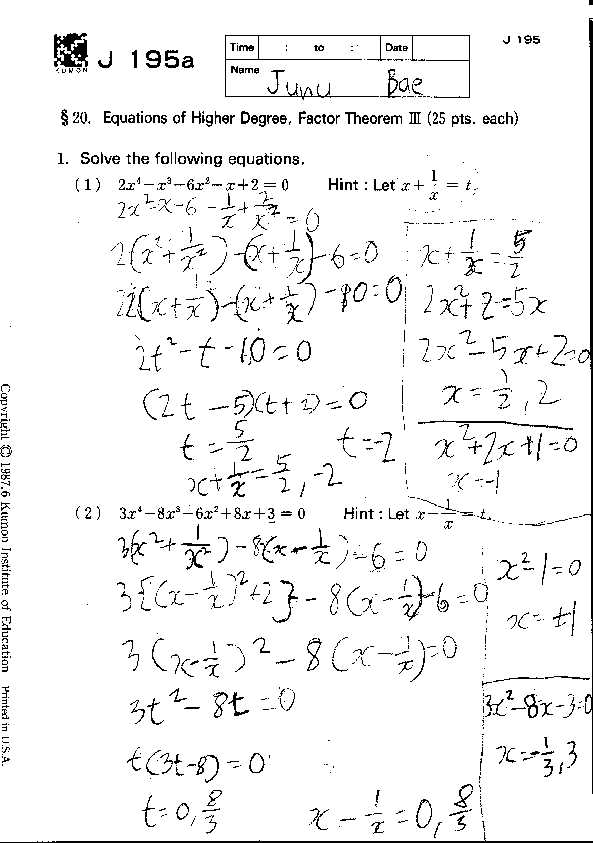 KUMON
J 195a
Time : to : Date
Name Junu Bae
J 195
§20. Equations of Higher Degree, Factor Theorem III (25 pts. each)
1. Solve the following equations.
(1) 2x⁴−x³−6x²−x+2=0 Hint : Let x+1/x = t.
2x²−x−6−1/x+2/x²=0
2(x²+1/x²)−(x+1/x)−6=0
(x+1/x)−(x+1/x)−10=0
2t²−t−10=0
(2t−5)(t+2)=0
t=5/2 t=−2
x+1/x=5/2,−2
x+1/x=5/2
2x²+2=5x
2x²−5x+2=0
x=1/2,2
x²+2x+1=0
x=−1
(2) 3x⁴−8x³−6x²+8x+3=0 Hint : Let x−1/x = t.
3(x²+1/x²)−8(x−1/x)−6=0
3{(x−1/x)²+2}−8(x−1/x)−6=0
3(x−1/x)²−8(x−1/x)=0
3t²−8t=0
t(3t−8)=0
t=0,8/3 x−1/x=0,8/3
x²−1=0
x=±1
3x²−8x−3=0
x=−1/3,3
Copyright © 1987.6 Kumon Institute of Education Printed in U.S.A.